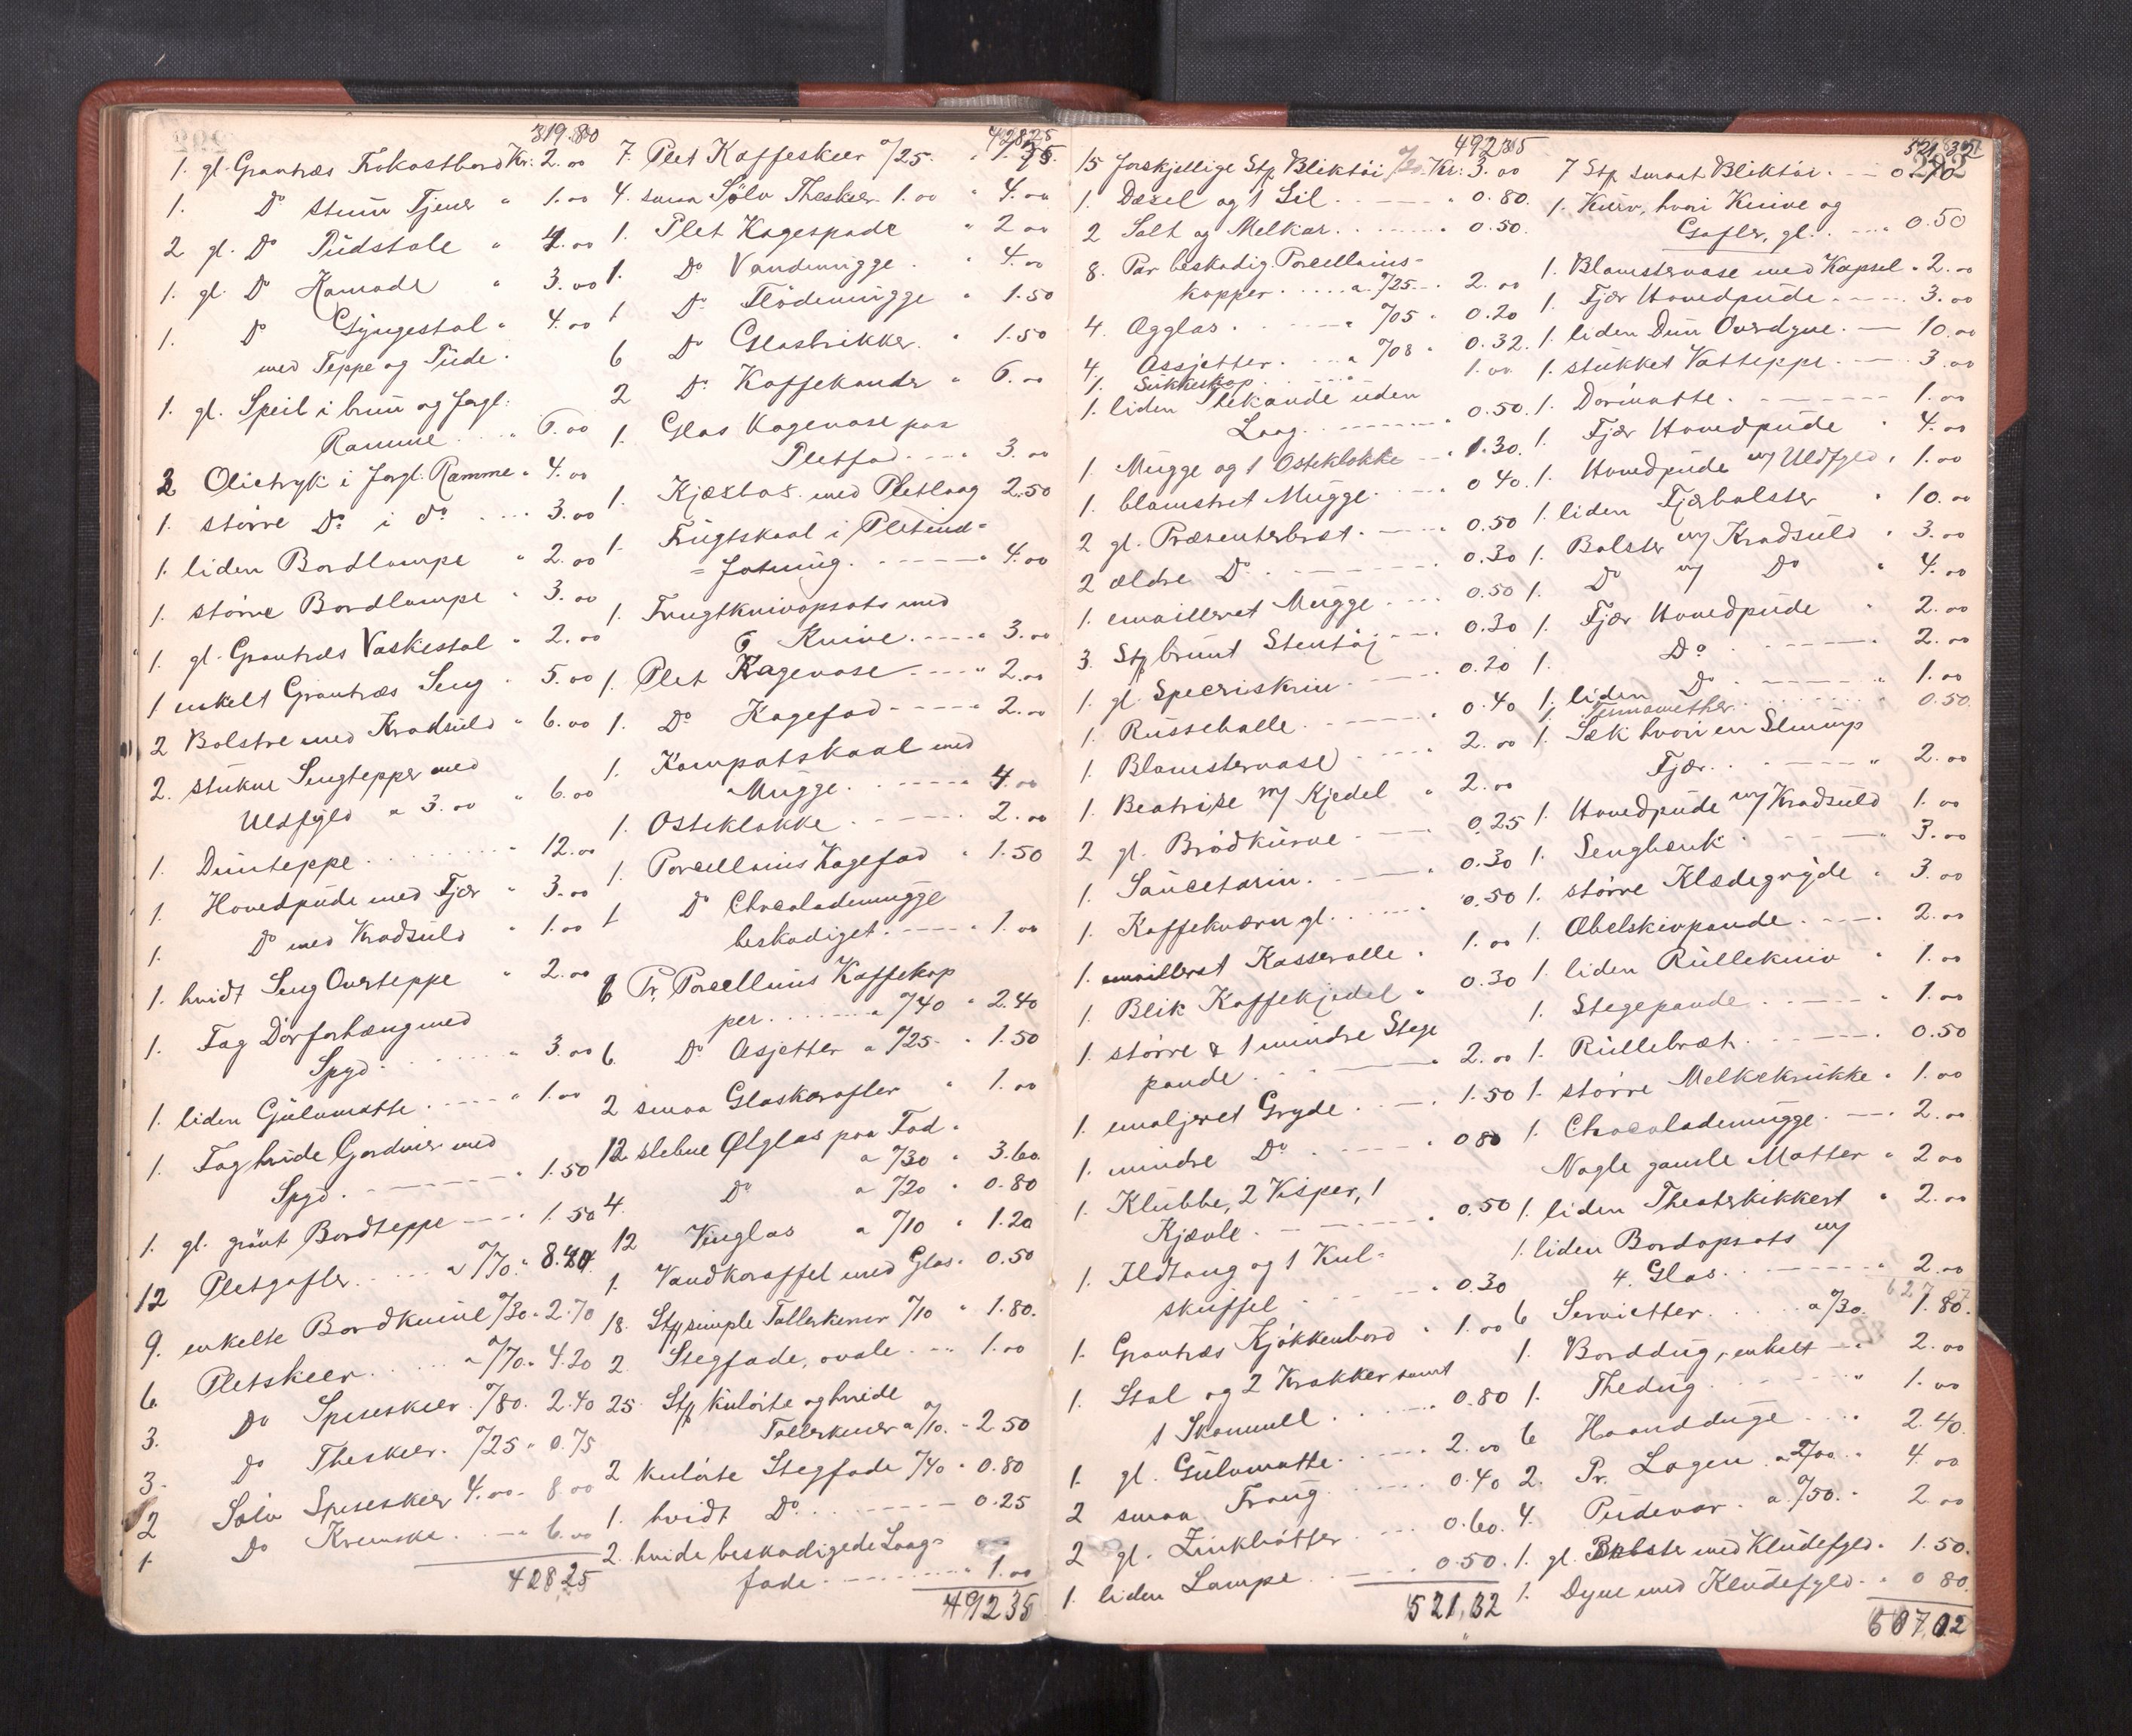 319.80
1. gl. Grantræs Frokostbord Kr: 2.00
1. Do stum Tjener " 1.00
2 gl. Do Pidstole " 4.00
1. gl. Do Komode " 3.00
1. Do Gyngestol " 4.00
med Teppe og Pude.
1. gl. Speil i brun og forgl.
Ramme . . . " 6.00
2 Olietryk i forgl. Ramme " 4.00
1. større Do i do . . . 3.00
1. liden Bordlampe " 2.00
1. større Bordlampe " 3.00
1. gl. Grantræs Vaskestol " 2.00
1 enkelt Grantræs Seng " 5.00
2 Bolstre med Kradsuld " 6.00
2. stukne Sengtepper med
Uldfyld a 3.00 " 6.00
1. Dunteppe . . . . . " 12.00
1. Hovedpude med Fjær " 3.00
1. Do med Kradsuld " 1.00
1. hvidt Seng Overteppe " 2.00
1. Fag Dørforhæng med
Spyd . . . . . " 3.00
1. liden Gulvmatte . . . " 1.00
1. Fag hvide Gardiner med
Spyd . . . . . " 1.50
1. gl. grønt Bordteppe . . . 1.50
12 Pletgafler . . . a 0/70 " 8.40
9. enkelte Bordknive 0/30 " 2.70
6 Pletskeer . . . a 0/70 " 4.20
3. Do Speseskeer 0/80. 2.40
3. Do Theskeer. 0/25 " 0.75
2 Sølv Speseskeer 4.00 " 8.00
1. Do Kremske . . . " 6.00
428,25
428.25
7. Plet Kaffeskeer 0/25. " 1.75
4. smaa Sølv Theskeer 1.00 " 4.00
1. Plet Kagespade " 2 00
1. Do Vandmugge . " 4.00
1 Do Flødemugge " 1.50
6 Do Glasbrikker. " 1.50
2 Do Kaffekander " 6.00
1. Glas Kagevase paa
Pletfod . . . " 3.00
1. Kjæxdas med Pletlaag 2.50
1. Frugtskaal i Pletind-
= fatning. . . . . " 4.00
1. Frugtknivopsats med
6 Knive . . . . " 3.00
1. Plet Kagevase . . . " 2.00
1. Do Kagefad . . . . 2.00
1. Kompotskaal med
Mugge . . . . . 4.00
1. Osteklokke . . . . . 2.00
1. Porcellains Kagefad " 1.50
1 Do Chocolademugge
beskadiget . . . . " 1.00
6 Pr. Porcellains Kaffekop
per. . . . . a 0/40 " 2.40
6. Do Asjetter a 0/25 " 1.50
2 smaa Glaskarafler " 1.00
12 slebne Ølglas paa Fod.
a 0/30 " 3.60
4. Do a 0/20 " 0.80
12 Vinglas a 0/10 " 1.20
1. Vandkaraffel med Glas " 0.50
18. Stp simple Tallerkener 0/10 " 1.80.
2. Stegfade, ovale . . . 1.00
25 Stp kulørte og hvide
Tallerkener a 0/10. " 2.50
2 kulørte Stegfade 0/40 " 0.80
1. hvidt Do . . . . . 0.25
2. hvide beskadigede Laag=
fade . . . . . . " 1.00
49235
49235
15 forskjellige Stp Bliktøi 0/20 Kr: 3.00
1. Dørsl og 1 Sil . . . . " 0.80.
2 Salt og Melkar . . . . " 0.50.
8. Par beskadig. Porcellains-
kopper . . . . a 0/25 . . 2.00
4. Ægglas . . . . a 0/05 " 0.20
4. Assjetter . . . a 0/08 " 0.32.
1. Sukkerkop . . . . 1.00
1. liden Thekande uden
Laag . . . . . . " 0.50.
1. Mugge og 1 Osteklokke " 1.30.
1. blomstret Mugge . . . " 0 40.
2 gl. Præsenterbræt . . . . 0.50
2 ældre Do . . . . . . 0.30
1. emailleret Mugge . . . 0.50
3. Stp brunt Stentøj . . . 0.30
1. gl. Specriskrin . . . . 0.20
1. Russeballe . . . . . . " 0.40
1. Blomstervase . . . . 2.00
1. Beatrise m/ Kjedel " 2.00
2 gl. Brødkurve . . . . 0.25
1. Saucetarin . . . . . . 0.30
1. Kaffekværn gl. . . . . 0.50
1. emailleret Kasserolle . 1.00
1. Blik Kaffekjedel " 0.30
1. større & 1 mindre Stege
pande . . . . . . " 2.00
1. emaljeret Gryde . . . . 1.50
1. mindre Do . . . . " 0 80
1. Klubbe, 2 Visper, 1
Kjævle . . . . . " 0.50
1. Ildtang og 1 Kul=
skuffel . . . . . " 0.30
1. Grantræs Kjøkkenbord " 1.00
1. Stol og 2 Krakker samt
1 Skammell . . . . . 0.80
1. gl. Gulvmatte . . . . . 2.00
2 smaa Traug . . . . . 0.40
2 gl. Zinkbøtter . . . . 0.60.
1. liden Lampe . . . . . 0.50.
521,32
521,32
282
7 Stp smaat Bliktøi . . . 0.70
1. Kurv, hvori Knive og
Gafler, gl. . . . . 0.50
1. Blomstervase med Kapsel " 2.00
1. Fjær Hovedpude . . . . 3.00
1. liden Dun Overdyne . . 10.00
1. stukket Vatteppe . . . . 3.00
1. Dørmatte . . . . . . . 1.00
1. Fjær Hovedpude " 4.00
1. Hovedpude m/ Uldfyld " 1.00
1. liden Fjærbolster " 10.00
1. Bolster m/ Kradsuld " 3.00
1. Do m/ Do " 4.00
1. Fjær Hovedpude " 2.00
1. Do . . . . . . . 2.00
1. liden Do . . . . . . " 1.00
1. Termomether . . . . . " 0.50.
1. Sæk hvori en Slump
Fjær . . . . . . " 2.00
1. Hovedpude m/ Kradsuld 1.00
1. Sengbænk . . . . . . " 3.00
1. større Klædegryde " 3.00
1. Æbelskivpande . . . . 2.00
1. liden Rullekniv " 1.00
1. Stegepande . . . . . " 1.00
1. Rullebræt . . . . . . 0.50
1. større Melkekrukke " 1.00
1. Chocolademugge . . . . 2.00
Nogle gamle Matter " 2 00
1. liden Theaterkikkert " 2.00
1. liden Bordopsats m/
4. Glas . . . . . . " 2.00
6 Servietter . . . . a 0/30. 1.80.
1. Borddug, enkelt . . " 2.00
1. Thedug . . . . . . " 1.00
6 Haandduge . . . . 2.40
2. Pr. Lagen a 2/00 " 4.00
4. Pudevar . a 0/50 . " 2.00
1. gl. Bolster med Kludefyld " 1.50.
1. Dyne med Kludefyld . . 0 80.
607,02